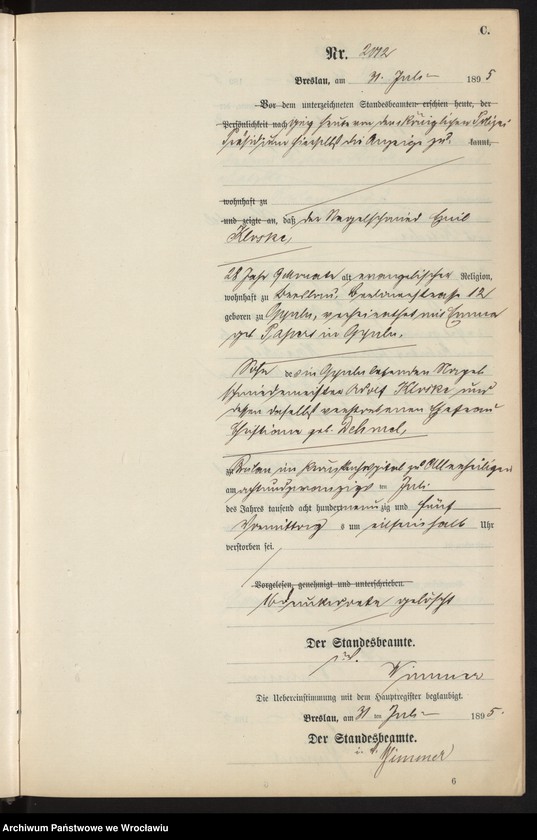 C.
Nr. 2092
Breslau, am 31. Juli 1895
Vor dem unterzeichneten Standesbeamten erschien heute, der
Persönlichkeit nach ging heute von dem Königlichen Polizei
Präsidium hierselbst die Anzeige zu, kannt,
wohnhaft zu
und zeigte an, daß der Nagelschmied Emil
Kloske,
28 Jahr 9 Monate alt, evangelischer Religion,
wohnhaft zu Breslau, 12
geboren zu verheirathet mit Emma
geb. in
Sohn des in lebenden Nagel
schmiedemeisters Adolf Kloske und
dessen daselbst verstorbenen Ehefrau
Christiane geb. Dehmel,
zu Breslau im Krankenhospital zu Allerheiligen
am achtundzwanzigsten Juli
des Jahres tausend acht hundert neunzig und fünf
Vormittags um Uhr
verstorben sei.
Vorgelesen, genehmigt und unterschrieben.
16 Druckworte gelöscht
Der Standesbeamte.
i. V.
Wimmer
Die Uebereinstimmung mit dem Hauptregister beglaubigt.
Breslau, am 31 ten Juli 1895.
Der Standesbeamte.
i. V. Wimmer
6
Archiwum Państwowe we Wrocławiu